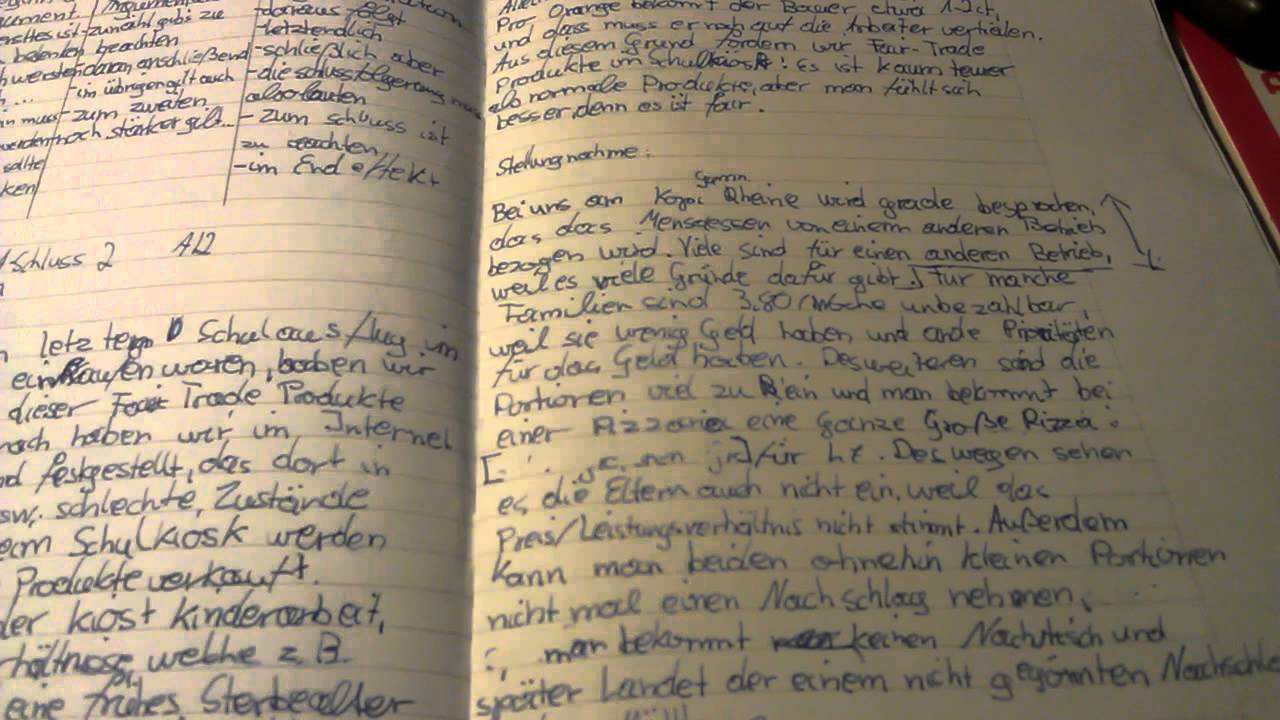 Argumentation
erstles ist -zunächst gubs zu
bedenken beachten
werster daran anschließend
-im übrigen gilt auch
in muss -zum zweiten
werden noch stärker gilt...
sollte
ken
-daraus folgt
-letztendlich
-schließlich aber
-die schlussfolgerung muss
also lauten
- zum schluss ist
zu beachten
-im End effekt
Schluss 2 AL2
letztem Schulausflug im
einkaufen waren, haben wir
dieser Fair Trade Produkte
nach haben wir im Internet
nd festgestellt, das dort in
sw. schlechte, Zustände
eim Schulkiosk werden
Produkte verkauft.
der kiost kinderarbeit,
hältnisse welche z.B.
eine frühes Sterbealter
Pro Orange bekommt der Bauer etwa 1 Ct,
und dass muss er noh auf die Arbeiter verteilen.
Aus diesem Grund fordern wir Fear-Trade
Produkte im Schulkiosk! Es ist kaum teuer
als normale Produkte, aber man fühlt sich
besser denn es ist fair.
Stellungnahme:
Bei uns am Kopi Rheine wird grade besprochen,
das das Mensaessen von einem anderen Betrieb
bezogen wird. Viele sind für einen anderen Betrieb,
weil es viele Gründe dafür gibt.] Für manche
Familien sind 3,80/Woche unbezahlbar,
weil sie wenig Geld haben und ande Prioritäten
für das Geld haben. Des weiteren sind die
Portionen viel zu klein und man bekommt bei
einer Pizzaria eine ganze Große Pizza
für Deswegen sehen
es die Eltern auch nicht ein, weil das
Preis/Leistungsverhältnis nicht stimmt. Außerdem
kann man bei den ohnehin kleinen Portionen
nicht mal einen Nachschlag nehmen,
man bekommt keinen Nachtisch und
später Landet der einem nicht gegönnten Nachschla